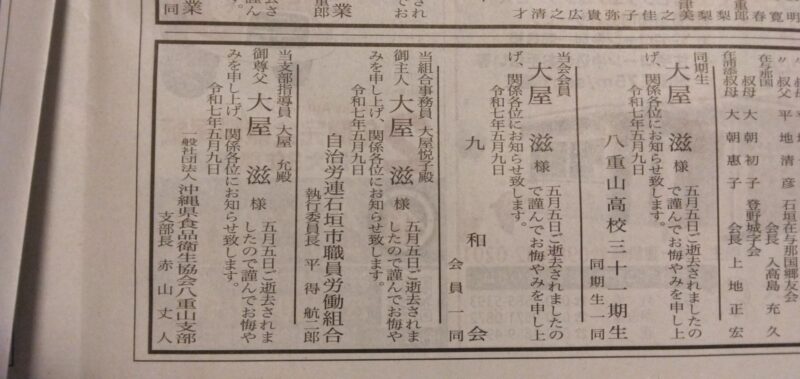 春
寛
明
重郎
梨津美
梨
佳之
子
弥
貴
広
之
清
才
業
同
在与那国
〃 叔父 平地清彦
叔母 大朝初子
在浦添叔母 大朝惠子
石垣在与那国郷友会
会長 入髙島充久
登野城字会
会長 上地正宏
同期生
大屋 滋 様 五月五日ご逝去されましたの
で謹んでお悔やみを申し上
げ、関係各位にお知らせ致します。
令和七年五月九日
八重山高校三十一期生
同期生一同
当会会員
大屋 滋 様 五月五日ご逝去されましたの
で謹んでお悔やみを申し上
げ、関係各位にお知らせ致します。
令和七年五月九日
九和会
会員一同
当組合事務員 大屋悦子殿
御主人 大屋 滋 様 五月五日ご逝去されま
したので謹んでお悔や
みを申し上げ、関係各位にお知らせ致します。
令和七年五月九日
自治労連石垣市職員労働組合
執行委員長 平得航二郎
当支部指導員 大屋 允殿
御尊父 大屋 滋 様 五月五日ご逝去されま
したので謹んでお悔や
みを申し上げ、関係各位にお知らせ致します。
令和七年五月九日
一般社団法人 沖縄県食品衛生協会八重山支部
支部長 赤山丈人